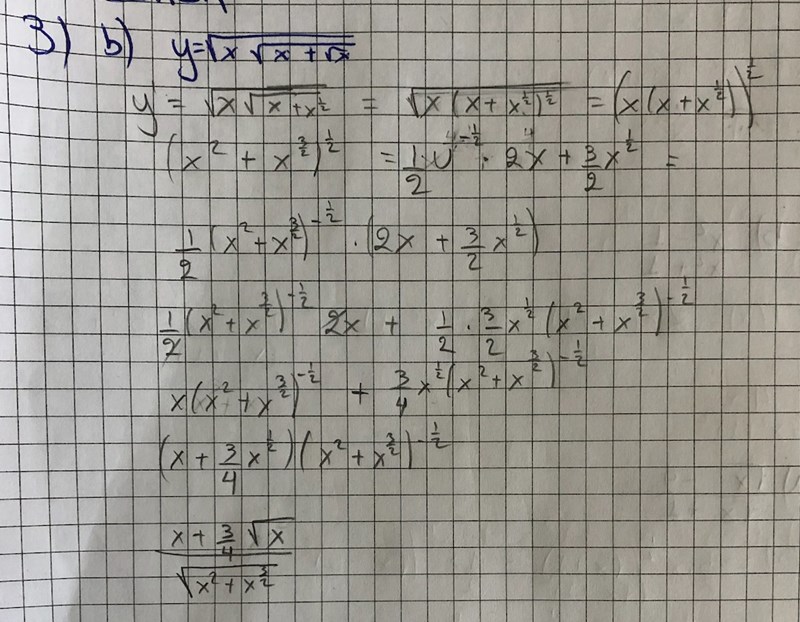 3) b) y=√(x √(x + √x))
y = √(x√(x+x^½)) = √(x(x+x^½)^½) = (x(x+x^½))^½
(x² + x^(3/2))^½ = 1/2 · u^(-½) · 2x + 3/2 x^½ =
1/2 (x²+x^(3/2))^(-½) · (2x + 3/2 x^½)
1/2 (x²+x^(3/2))^(-½) 2x + 1/2 · 3/2 x^½ (x²+x^(3/2))^(-½)
x(x²+x^(3/2))^(-½) + 3/4 x^½ (x²+x^(3/2))^(-½)
(x + 3/4 x^½)(x²+x^(3/2))^(-½)
x + 3/4 √x
√(x²+x^(3/2))